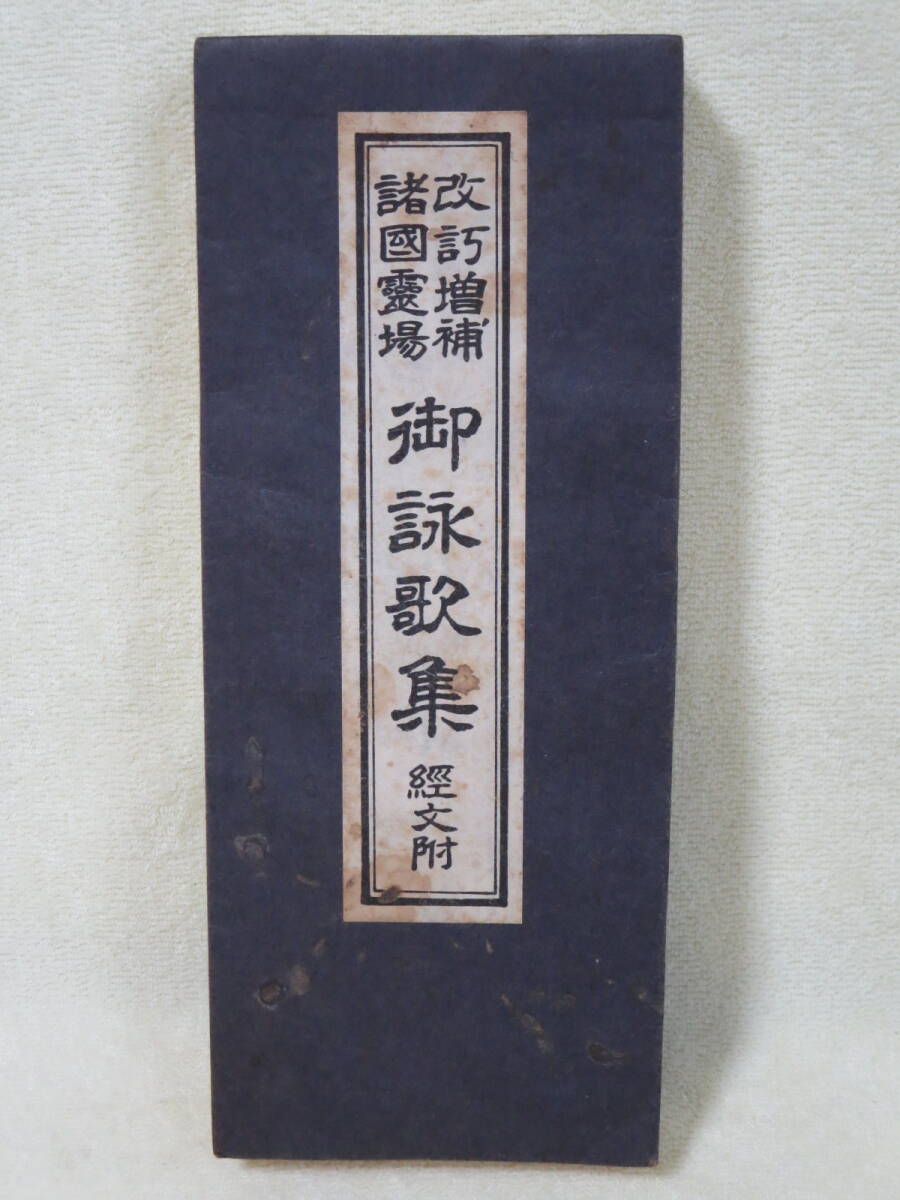 改訂増補
諸國靈場
御詠歌集
經文附